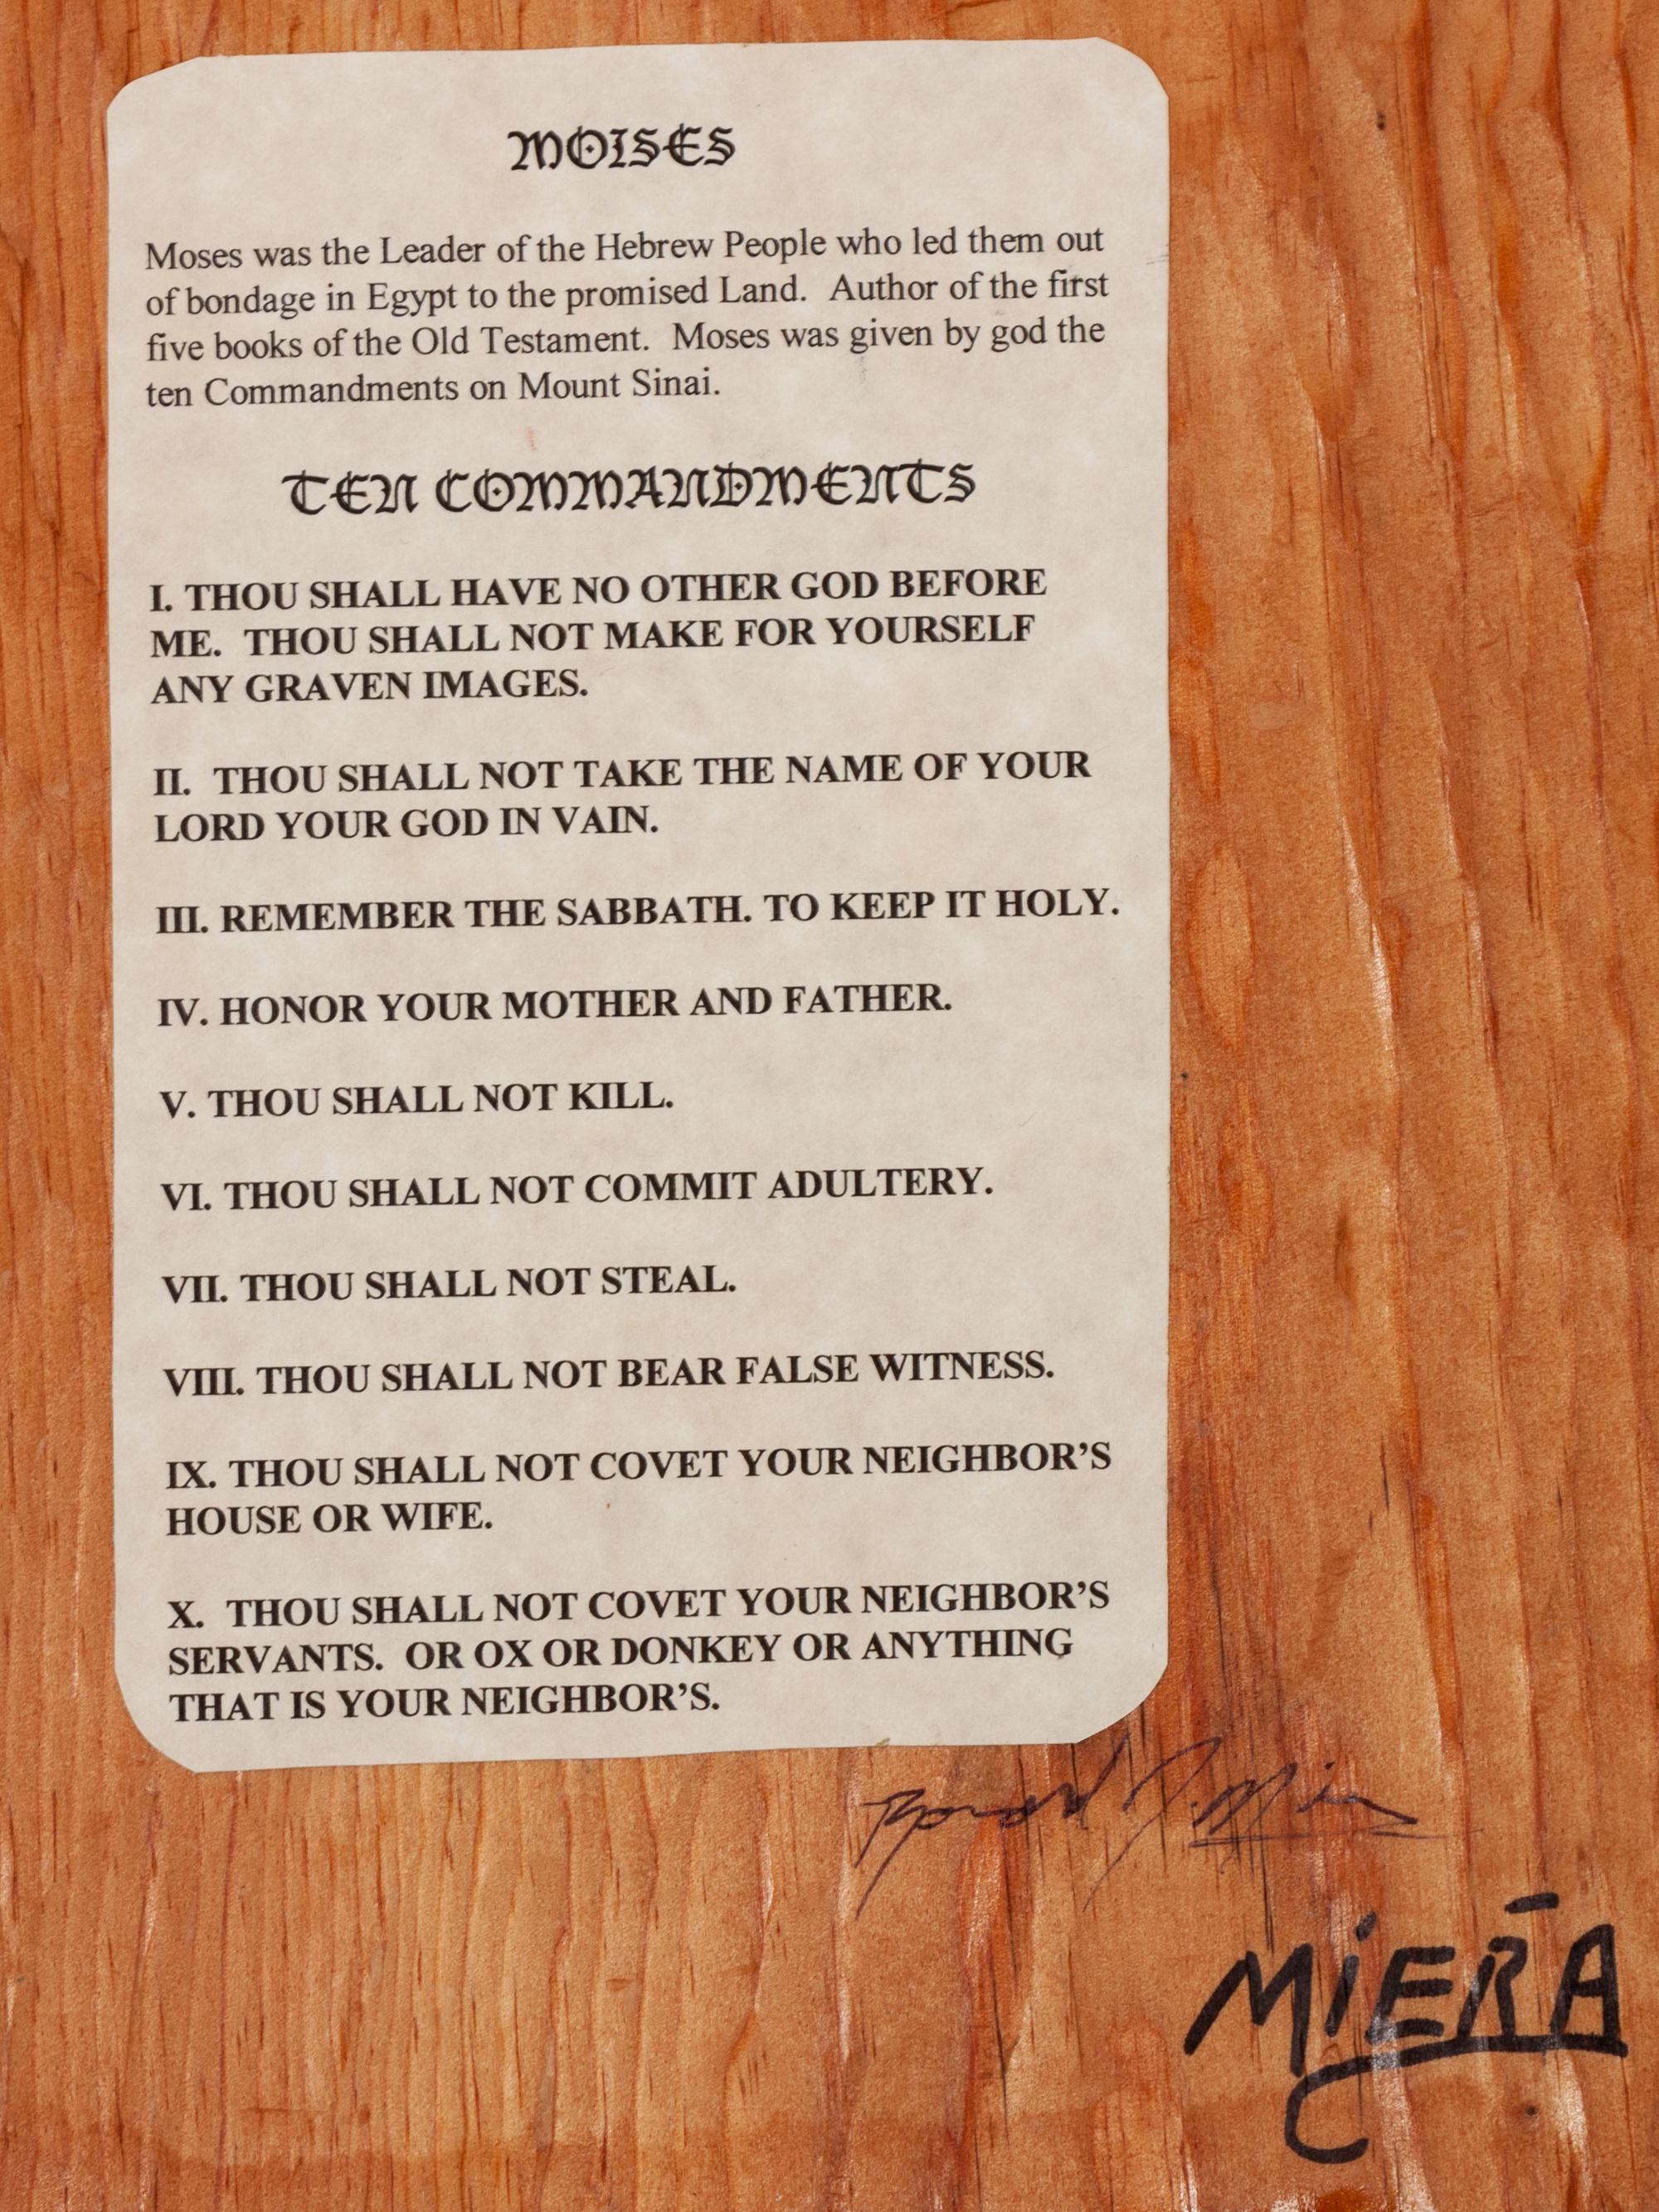 MOISES
Moses was the Leader of the Hebrew People who led them out
of bondage in Egypt to the promised Land.  Author of the first
five books of the Old Testament.  Moses was given by god the
ten Commandments on Mount Sinai.
TEN COMMANDMENTS
I. THOU SHALL HAVE NO OTHER GOD BEFORE
ME.  THOU SHALL NOT MAKE FOR YOURSELF
ANY GRAVEN IMAGES.
II.  THOU SHALL NOT TAKE THE NAME OF YOUR
LORD YOUR GOD IN VAIN.
III. REMEMBER THE SABBATH. TO KEEP IT HOLY.
IV. HONOR YOUR MOTHER AND FATHER.
V. THOU SHALL NOT KILL.
VI. THOU SHALL NOT COMMIT ADULTERY.
VII. THOU SHALL NOT STEAL.
VIII. THOU SHALL NOT BEAR FALSE WITNESS.
IX. THOU SHALL NOT COVET YOUR NEIGHBOR'S
HOUSE OR WIFE.
X.  THOU SHALL NOT COVET YOUR NEIGHBOR'S
SERVANTS.  OR OX OR DONKEY OR ANYTHING
THAT IS YOUR NEIGHBOR'S.
MiERA